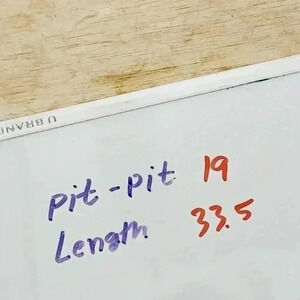 U BRAND
pit-pit 19
Length 33.5